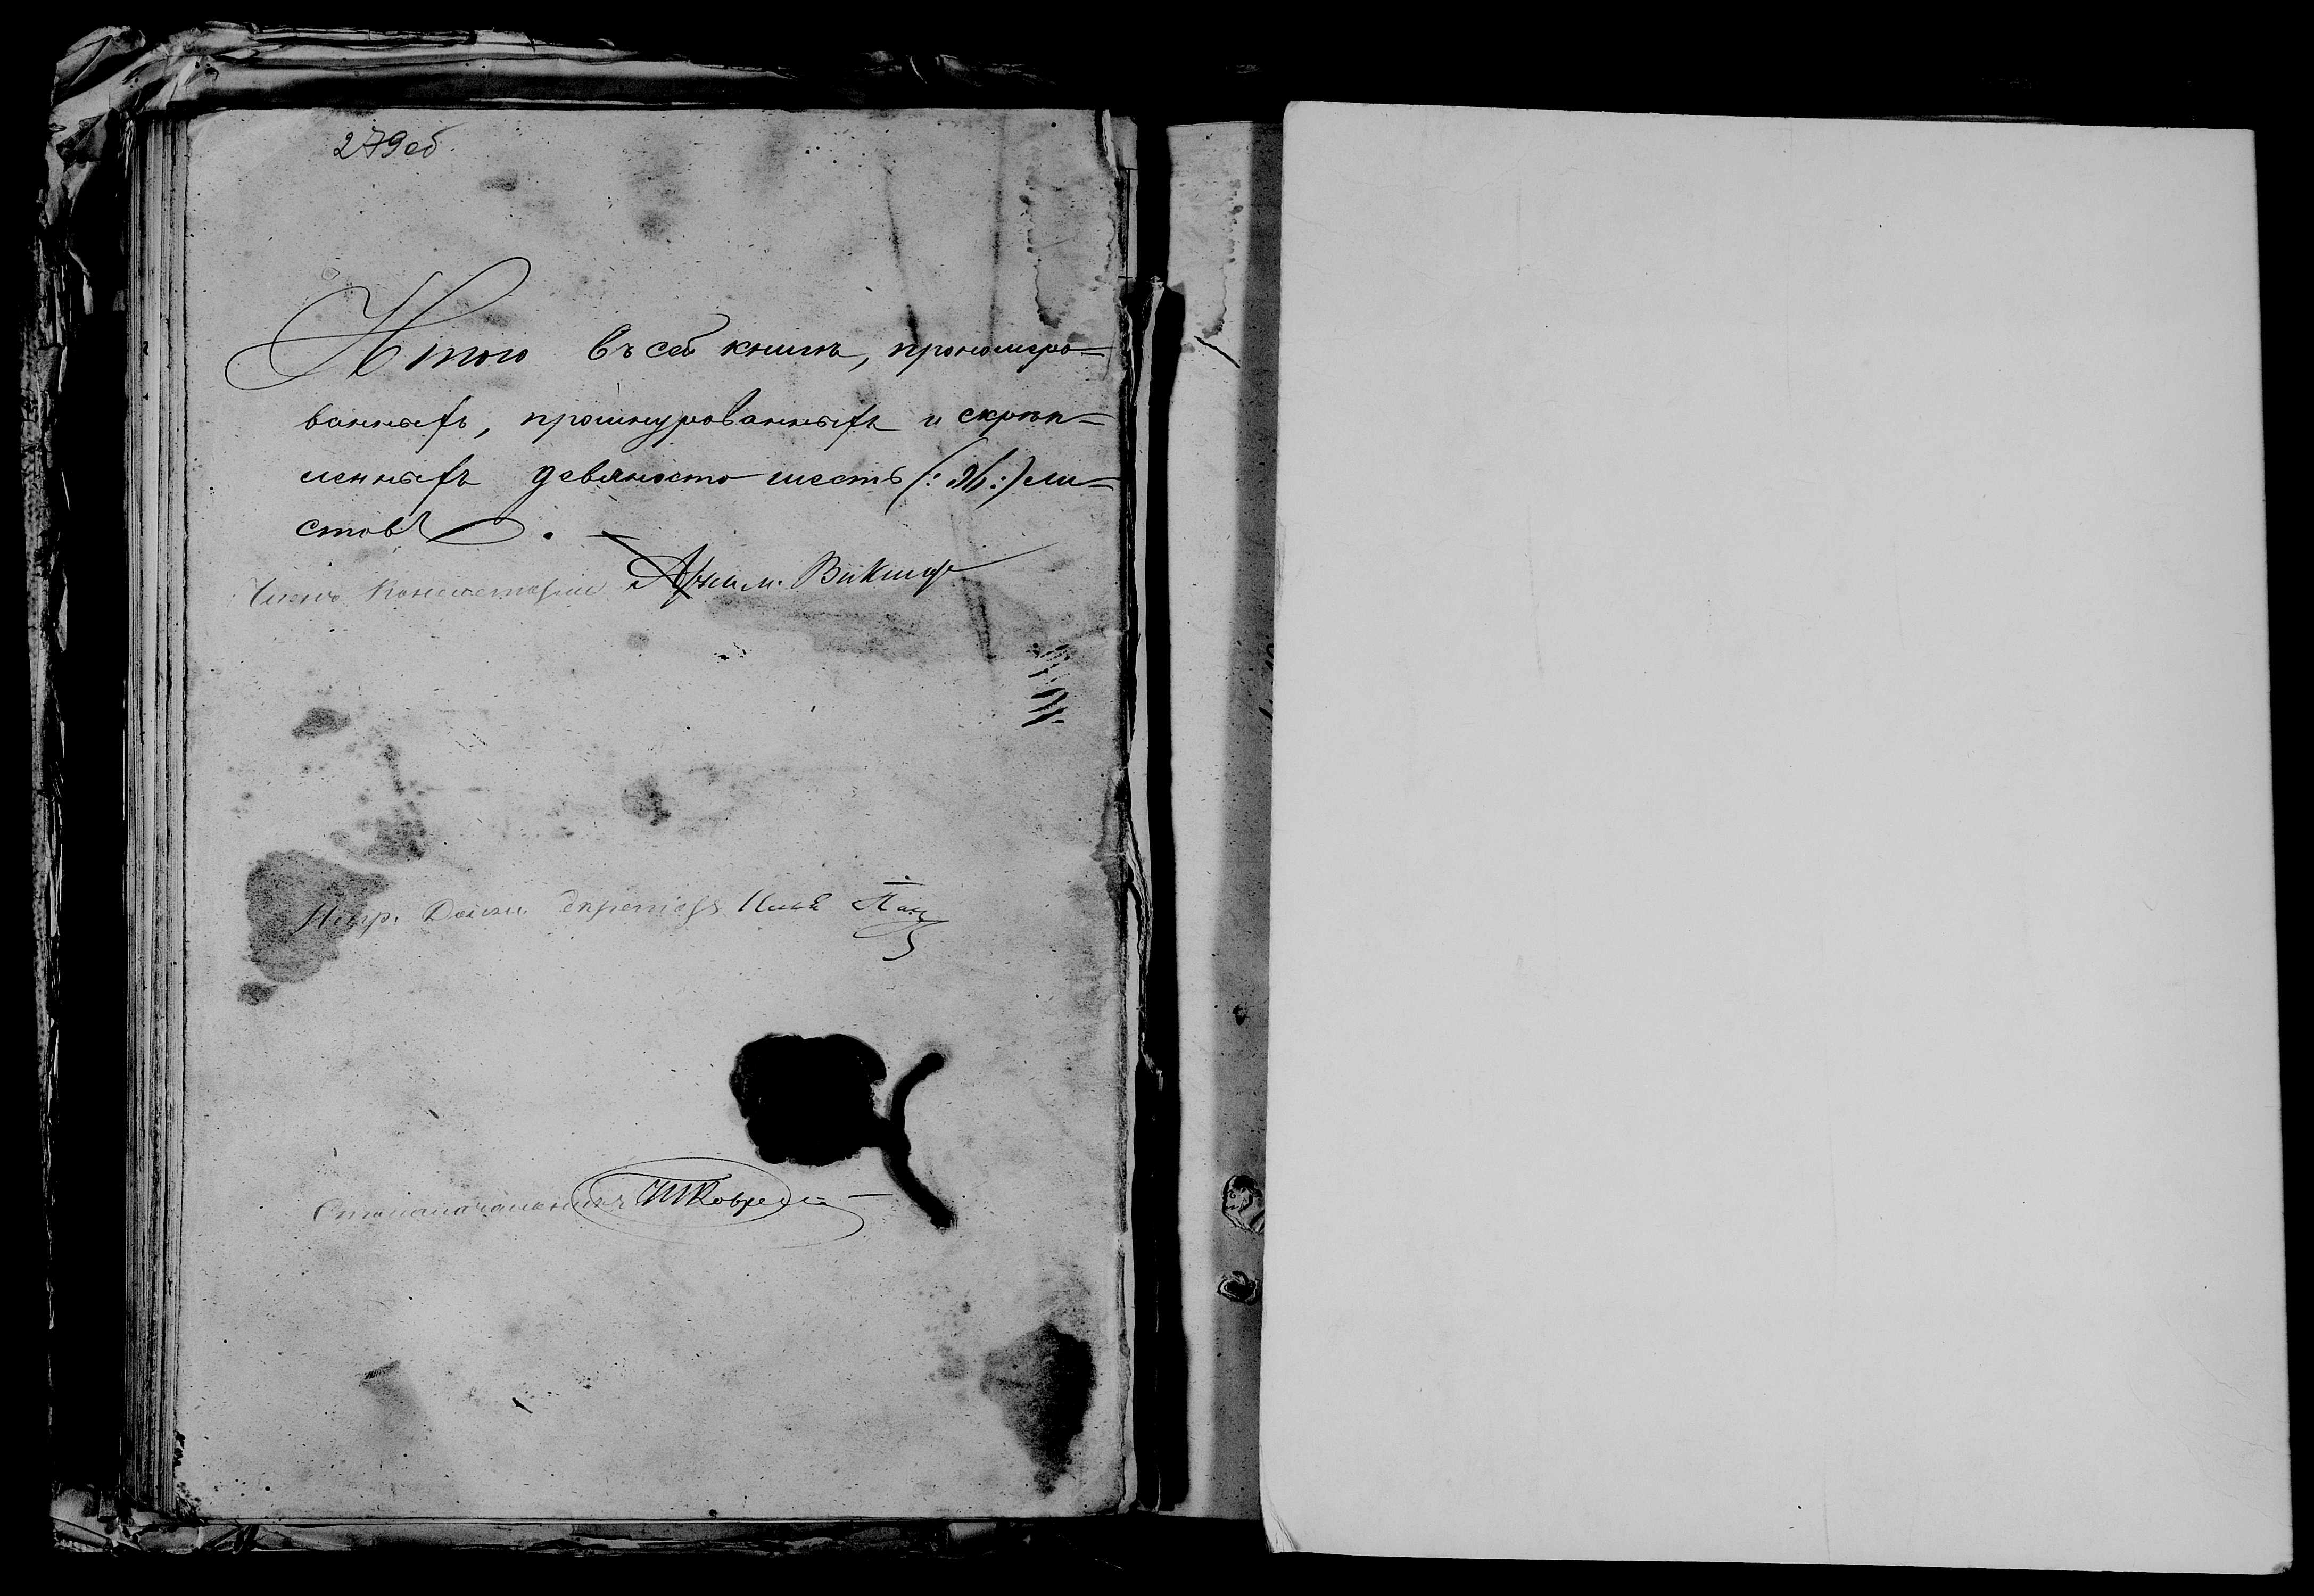 279об.
Итого въ сей книгѣ, прономеро=
ванныхъ, прошнурованныхъ и скрѣп=
ленныхъ девяносто шесть (: 96 :) ли=
стовъ.
Членъ Консисторіи Архим. Викторъ
Столоначальникъ